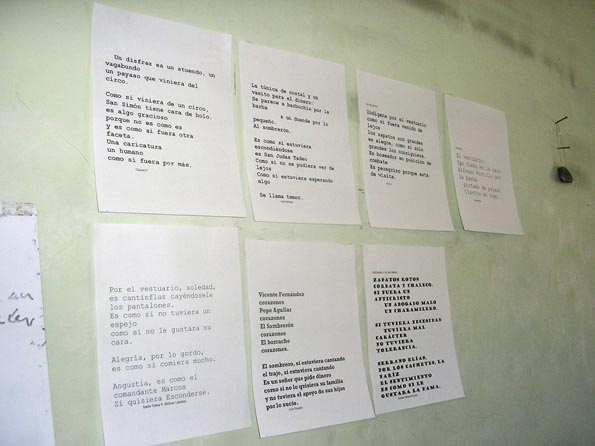 Un disfraz es un atuendo, un
vagabundo
un payaso que viniera del
circo.
Como si viniera de un circo,
San Simón tiene cara de bolo.
es algo gracioso
porque no es como es
y es como si fuera otra
faceta.
Una caricatura
un humano
como si fuera por más.
La túnica de costal y un
vasito para el dinero:
Se parece a barbuchín por la
barba
a un duende por lo
pequeño.
Al sombrerón.
Es como si estuviera
escondiéndose
es San Judas Tadeo
Como si no se pudiera ver de
lejos
Como si estuviera esperando
algo
Se llama temor.
Indígena por el vestuario
como si fuera venido de
lejos
los zapatos son grandes
es alegre, como si sólo
grandes los consiguiera.
Es boxeador en posición de
combate
Es peregrino porque está
de visita.
El vestuario:
la barba
pintado de payaso
Por el vestuario, soledad,
es cantinflas cayéndosele
los pantalones.
Es como si no tuviera un
espejo
como si no le gustara su
cara.
Alegría, por lo gordo,
es como si comiera mucho.
Angustia, es como el
comandante Marcos
Si quisiera Esconderse.
Vicente Fernández
corazones
Pepe Aguilar
corazones
El Sombrerón
corazones
El borracho
corazones.
El sombrero, si estuviera cantando
el traje, si estuviera cantando
Es un señor que pide dinero
como si no lo quisiera su familia
y no tuviera el apoyo de sus hijos
por lo sucio.
ZAPATOS ROTOS
CORBATA Y CHALECO.
SI FUERA UN
ANTICRISTO
UN ABOGADO MALO
UN CHARAMILERO.
SI TUVIERA NECESIDAD
TUVIERA MAL
CARÁCTER
NO TUVIERA
TOLERANCIA.
SERRANO ELÍAS,
POR LOS CACHETES, LA
NARIZ
EL SENTIMIENTO
ES COMO SI LE
GUSTARA LA FAMA.